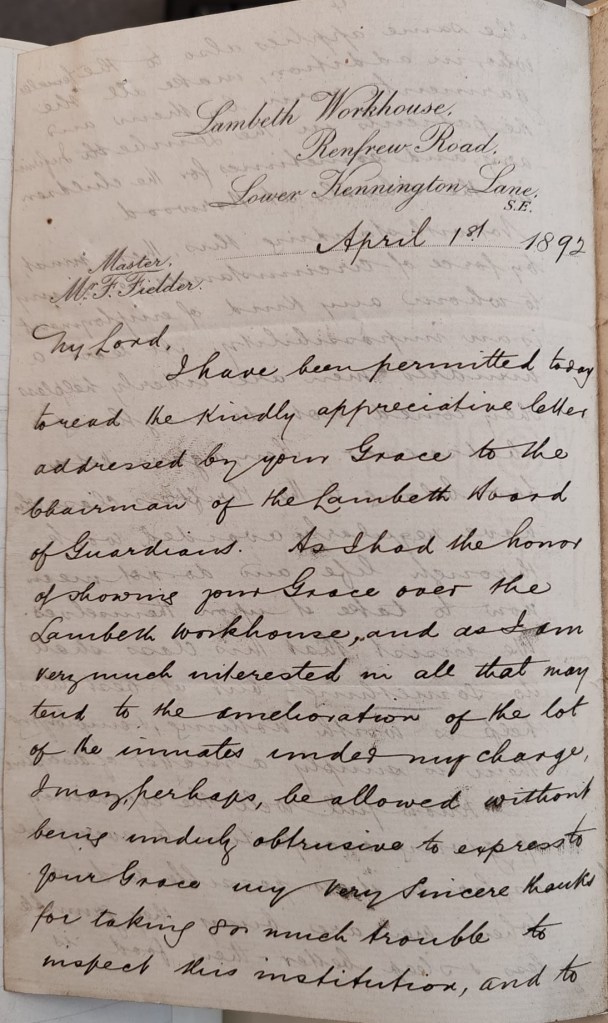 Lambeth Workhouse,
Renfrew Road,
Lower Kennington Lane,
S.E.
April 1st 1892
Master,
Mr. F. Fielder.
My Lord,
I have been permitted today
to read the kindly appreciative letter
addressed by your Grace to the
Chairman of the Lambeth Board
of Guardians. As I had the honor
of showing your Grace over the
Lambeth Workhouse, and as I am
very much interested in all that may
tend to the amelioration of the lot
of the inmates under my charge,
I may, perhaps, be allowed without
being unduly obtrusive to express to
your Grace my very sincere thanks
for taking so much trouble to
inspect this institution, and to